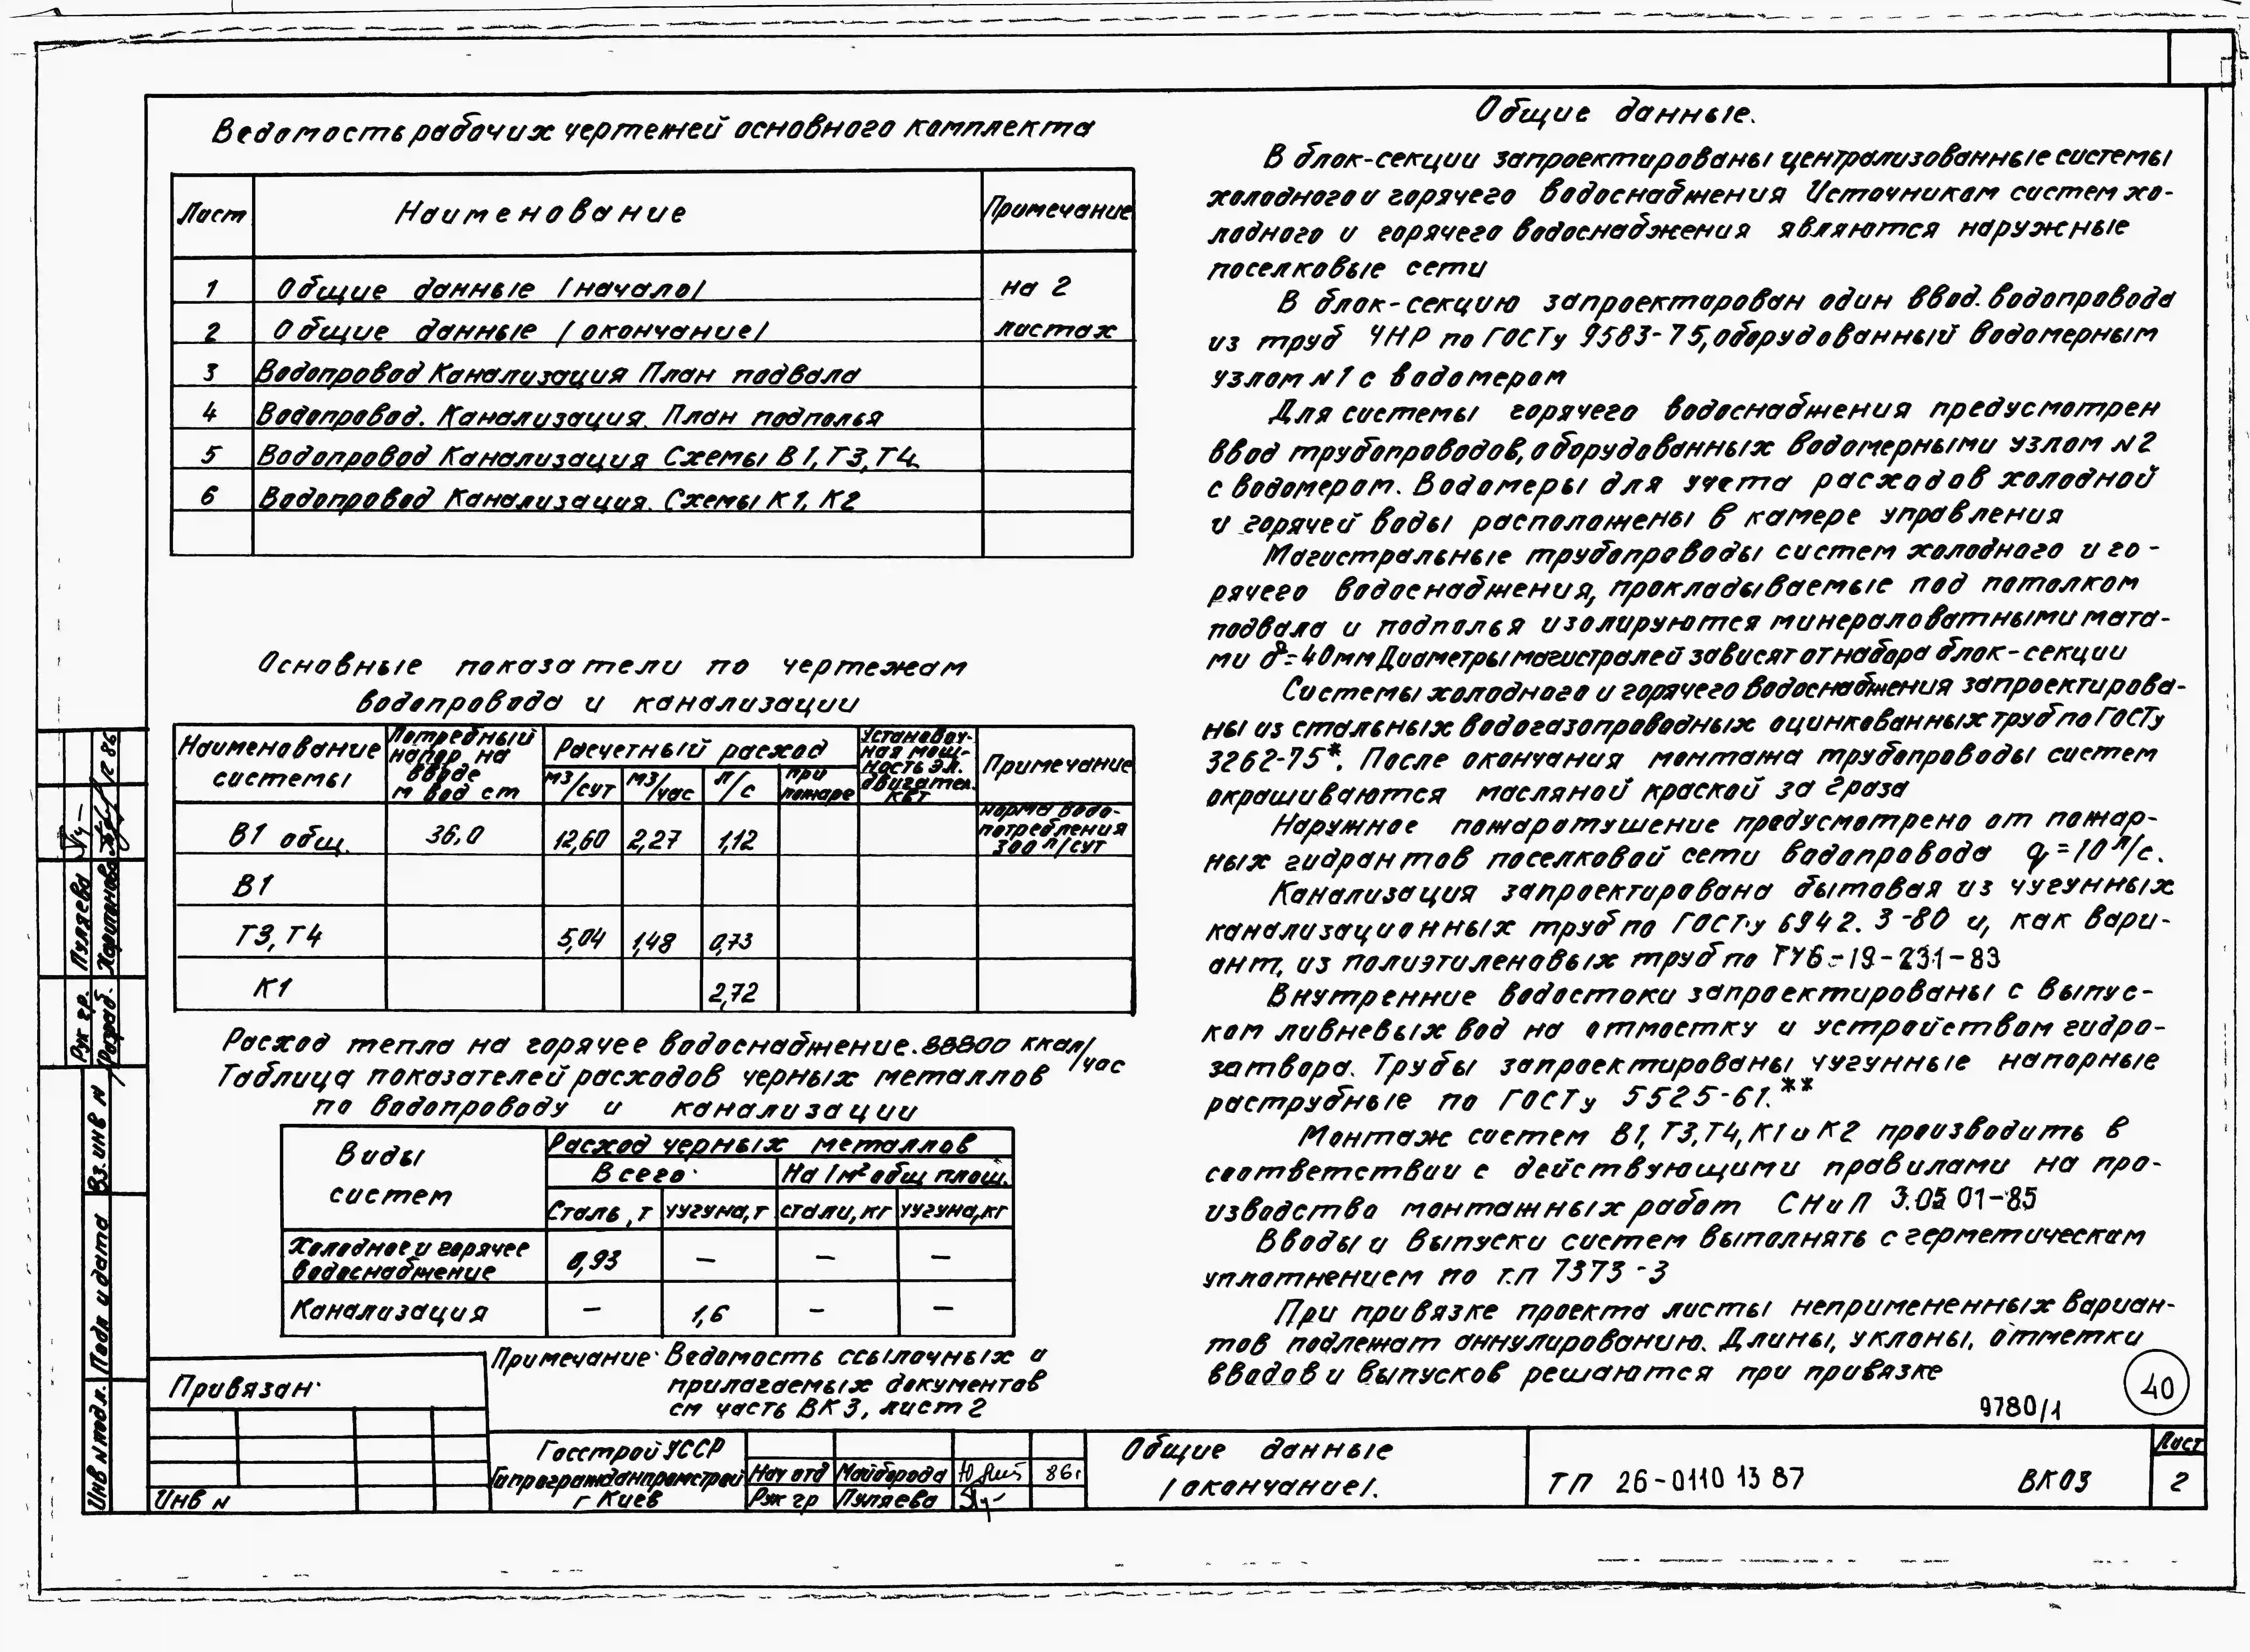 Ведомость рабочих чертежей основного комплекта
Лист Наименование Примечание
1 Общие данные /начало/ на 2
2 Общие данные /окончание/ листах
3 Водопровод Канализация План подвала
4 Водопровод. Канализация. План подполья
5 Водопровод Канализация Схемы В1, Т3, Т4
6 Водопровод Канализация. Схемы К1, К2
Основные показатели по чертежам
водопровода и канализации
Наименование системы
Потребный напор на вводе м вод ст
Расчетный расход
м3/сут м3/час л/с при пожаре
Установоч-
ная мощ-
ность эл.
двигател.
кВт
Примечание
В1 общ. 36,0 12,60 2,27 1,12 норма водо-
потребления
300 л/сут
В1
Т3, Т4 5,04 1,48 0,73
К1 2,72
Расход тепла на горячее водоснабжение. 88800 ккал/час
Таблица показателей расходов черных металлов
по водопроводу и канализации
Виды систем
Расход черных металлов
Всего На 1м² общ площ.
Сталь, т чугуна, т стали, кг чугуна, кг
Холодное и горячее
водоснабжение 0,93 — — —
Канализация — 1,6 — —
Примечание Ведомость ссылочных и
прилагаемых документов
см часть ВК3, лист 2
Общие данные.
В блок-секции запроектированы централизованные системы
холодного и горячего водоснабжения Источником систем хо-
лодного и горячего водоснабжения являются наружные
поселковые сети
В блок-секцию запроектирован один ввод. водопровода
из труб ЧНР по ГОСТу 9583-75, оборудованный водомерным
узлом №1 с водомером
Для системы горячего водоснабжения предусмотрен
ввод трубопроводов, оборудованных водомерными узлом №2
с водомером. Водомеры для учета расходов холодной
и горячей воды расположены в камере управления
Магистральные трубопроводы систем холодного и го-
рячего водоснабжения, прокладываемые под потолком
подвала и подполья изолируются минераловатными мата-
ми δ=40мм Диаметры магистралей зависят от набора блок-секции
Системы холодного и горячего водоснабжения запроектирова-
ны из стальных водогазопроводных оцинкованных труб по ГОСТу
3262-75*. После окончания монтажа трубопроводы систем
окрашиваются масляной краской за 2 раза
Наружное пожаротушение предусмотрено от пожар-
ных гидрантов поселковой сети водопровода q=10 л/с.
Канализация запроектирована бытовая из чугунных
канализационных труб по ГОСТу 6942.3-80 и, как вари-
ант, из полиэтиленовых труб по ТУ6-19-231-83
Внутренние водостоки запроектированы с выпус-
ком ливневых вод на отмостку и устройством гидро-
затвора. Трубы запроектированы чугунные напорные
раструбные по ГОСТу 5525-61.**
Монтаж систем В1, Т3, Т4, К1 и К2 производить в
соответствии с действующими правилами на про-
изводство монтажных работ СНиП 3.05 01-85
Вводы и выпуски систем выполнять с герметическам
уплотнением по т.п 7373-3
При привязке проекта листы непримененных вариан-
тов подлежат аннулированию. Длины, уклоны, отметки
вводов и выпусков решаются при привязке
40
9780/1
Привязан
Инв №
Госстрой УССР
Гипрогражданпромстрой
г Киев
Нач отд Майборода 86г
Рук гр Пуляева
Общие данные
/окончание/.
ТП 26-0110 13 87 ВК03
Лист
2
Рук гр. Пуляева
Разраб.
Вз. инв №
Подп и дата
Инв № подл.